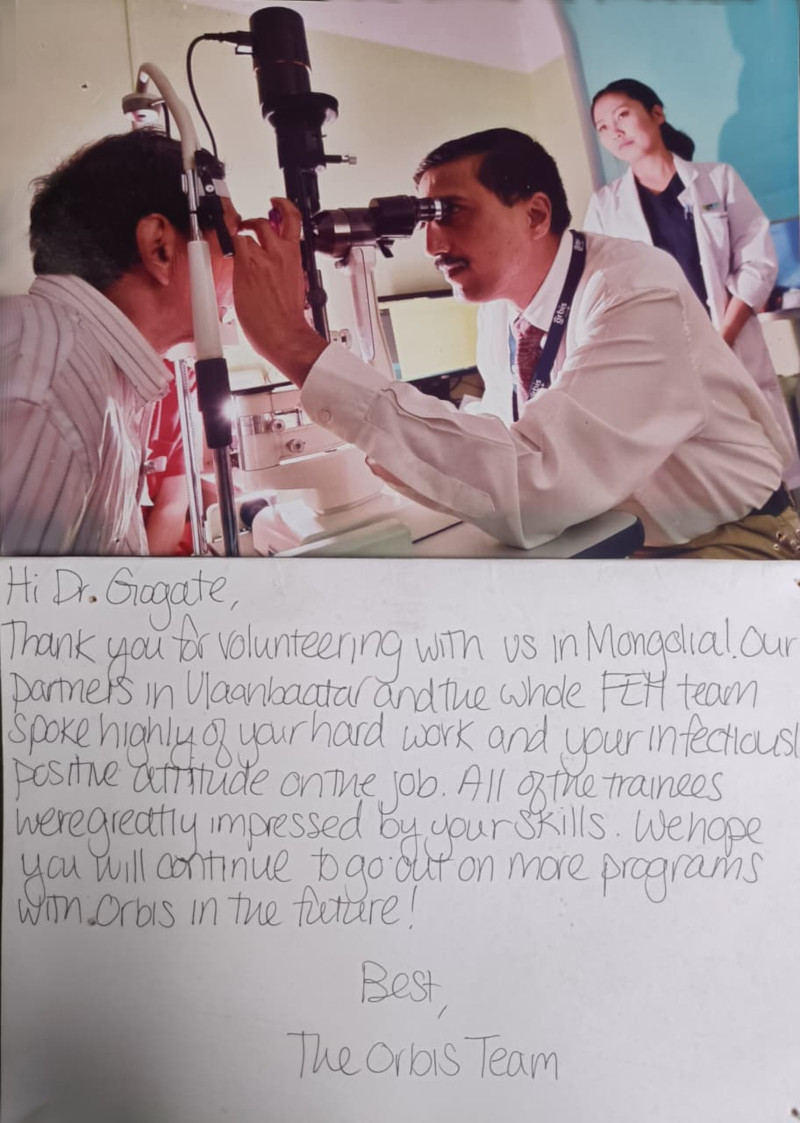 Orbis
Hi Dr. Gogate,
Thank you for volunteering with us in Mongolia! Our
partners in Ulaanbaatar and the whole FEH team
spoke highly of your hard work and your infectiousl
positive attitude on the job. All of the trainees
were greatly impressed by your skills. We hope
you will continue to go out on more programs
with Orbis in the future!
Best,
The Orbis Team